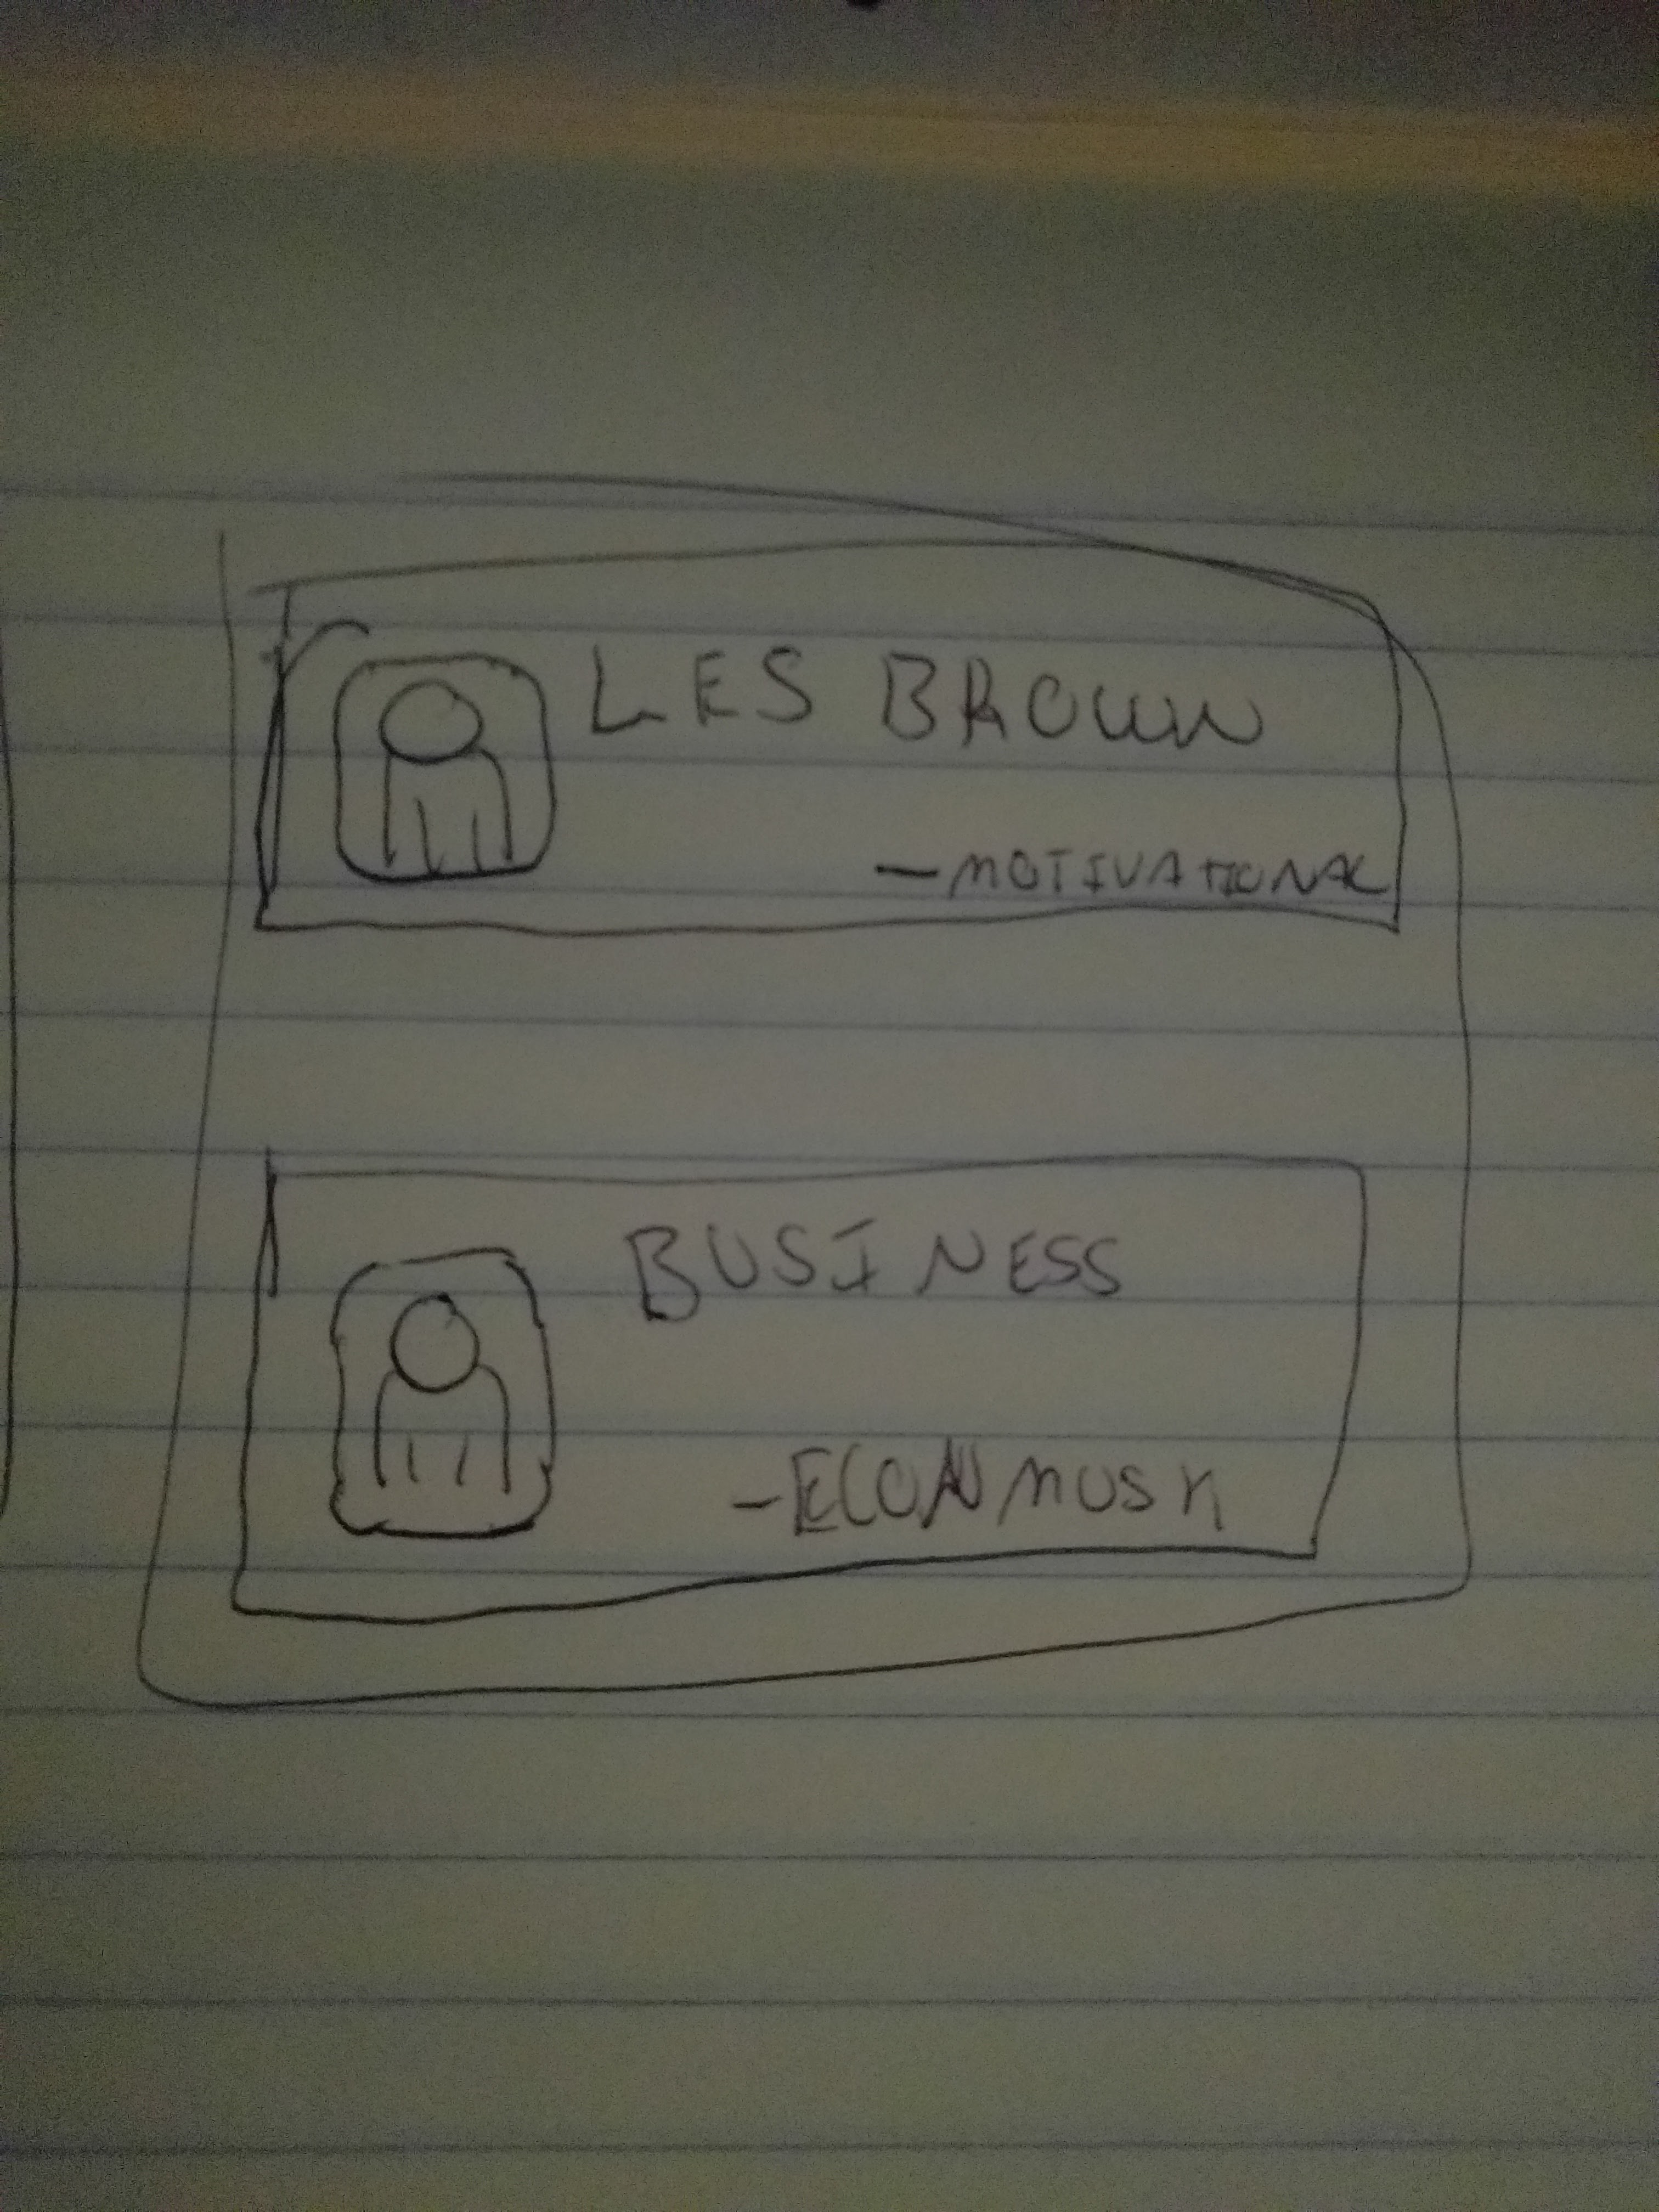 LES BROWN
- MOTIVATIONAL
BUSINESS
- ECON MUSK